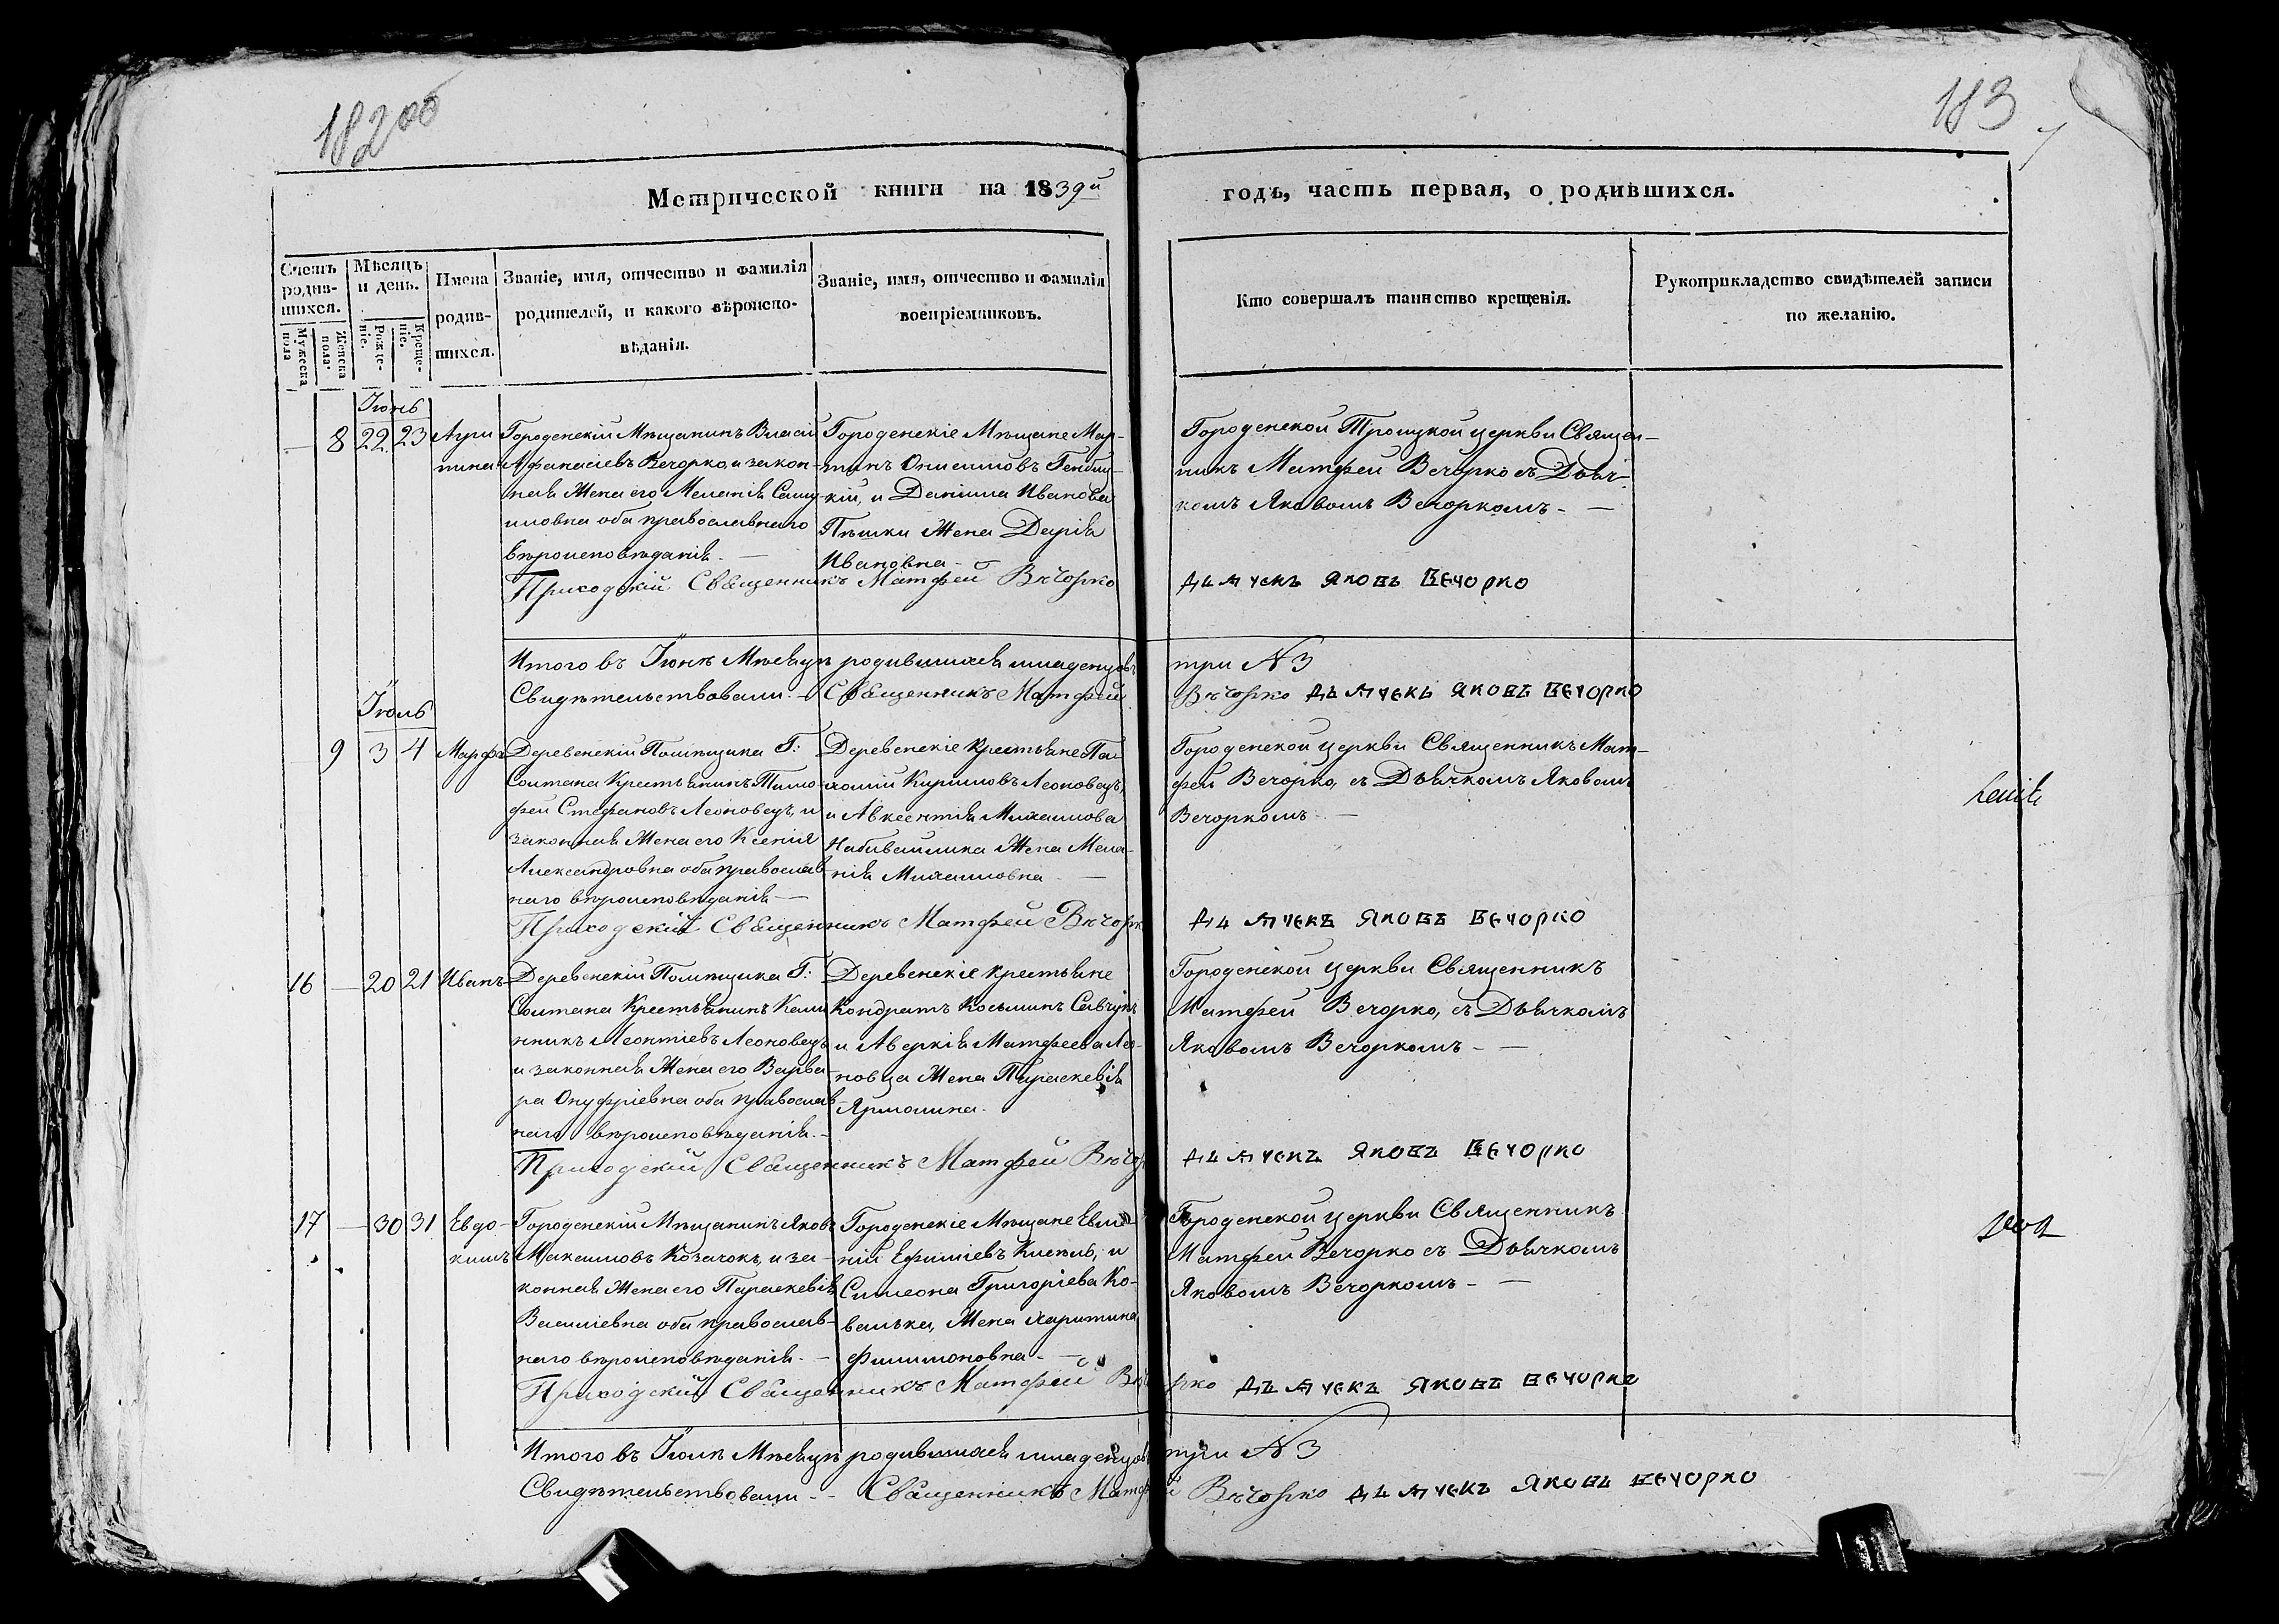 182об
183
Метрической книги на 1839й
годъ, часть первая, о родившихся.
Счетъ родив-шихся.
Мужеска пола
Женска пола
Мѣсяцъ и день.
Рожде-ніе.
Креще-ніе.
Имена родив-шихся.
Званіе, имя, отчество и фамилія
родителей, и какого вѣроиспо-
вѣданія.
Званіе, имя, отчество и фамилія
воспріемниковъ.
Кто совершалъ таинство крещенія.
Рукоприкладство свидѣтелей записи
по желанію.
Іюнь
— 8 22 23
Агри
пина
Городенскій Мѣщанинъ Власій
Афанасіевъ Вечорко, и закон-
ная Жена его Меланія Саму
иловна оба православнаго
вѣроисповѣданія. —
Городенскіе Мѣщане Мар-
тинъ Онисимовъ
кій, и Даніила Иванова
Пѣшки Жена Дарія
Ивановна —
Городенской Троицкой церкви Священ—
никъ Матфей Вечорко съ Дьяч-
комъ Яковомъ Вечоркомъ — —
Приходскій Священникъ Матфей Вѣчорко
Дьячекъ Яковъ Вечорко
Итого въ Іюнѣ Мѣсяцѣ родившихся младенцовъ три № 3
Свидѣтельствовали — Священникъ Матфей Вѣчорко Дьячекъ Яковъ Вечорко
Іюль
9 3 4
Марфа
Деревенскій Помѣщика Г:
Солтана Крестьянинъ Тимо-
фей Стефановъ Леоновецъ, и
законная Жена его Ксенія
Александровна оба православ-
наго вѣроисповѣданія —
Деревенскіе Крестьяне Па-
хомій Кириловъ Леоновецъ,
и Авксентія Михаилова
Жена Мела-
нія Михаиловна —
Городенской церкви Священникъ Мат—
фей Вечорко, съ Дьячкомъ Яковомъ
Вечоркомъ —
Приходскій Священникъ Матфей Вѣчорк
Дьячекъ Яковъ Вечорко
16 — 20 21
Иванъ
Деревенскій Помѣщика Г:
Солтана Крестьянинъ Кали
нникъ Леонтіевъ Леоновецъ
и законная Жена его Варва
ра Онуфріевна оба православ-
наго вѣроисповѣданія. —
Деревенскіе Крестьяне
Кондратъ Косьминъ Савчукъ
и Аверкія Матфеева Лео-
новца Жена Параскевія
Ярмолина.
Городенской церкви Священникъ
Матфей Вечорко, съ Дьячкомъ
Яковомъ Вечоркомъ — —
Приходскій Священникъ Матфей Вѣчор
Дьячекъ Яковъ Вечорко
17 — 30 31
Евдо-
кимъ
Городенскій Мѣщанинъ Яковъ
Максимовъ Козачокъ, и за-
конная Жена его Параскевія
Василіевна оба православ-
наго вѣроисповѣданія. —
Городенскіе Мѣщане
Ефиміевъ и
Симеона Григоріева Ко-
валька, Жена Харитина
Филимоновна —
Городенской церкви Священникъ
Матфей Вечорко съ Дьячкомъ
Яковомъ Вечоркомъ — —
Приходскій Священникъ Матфей Вѣчорко Дьячекъ Яковъ Вечорко
Итого въ Іюлѣ Мѣсяцѣ родившихся младенцовъ три № 3
Свидѣтельствовали — Священникъ Матфей Вѣчорко Дьячекъ Яковъ Вечорко